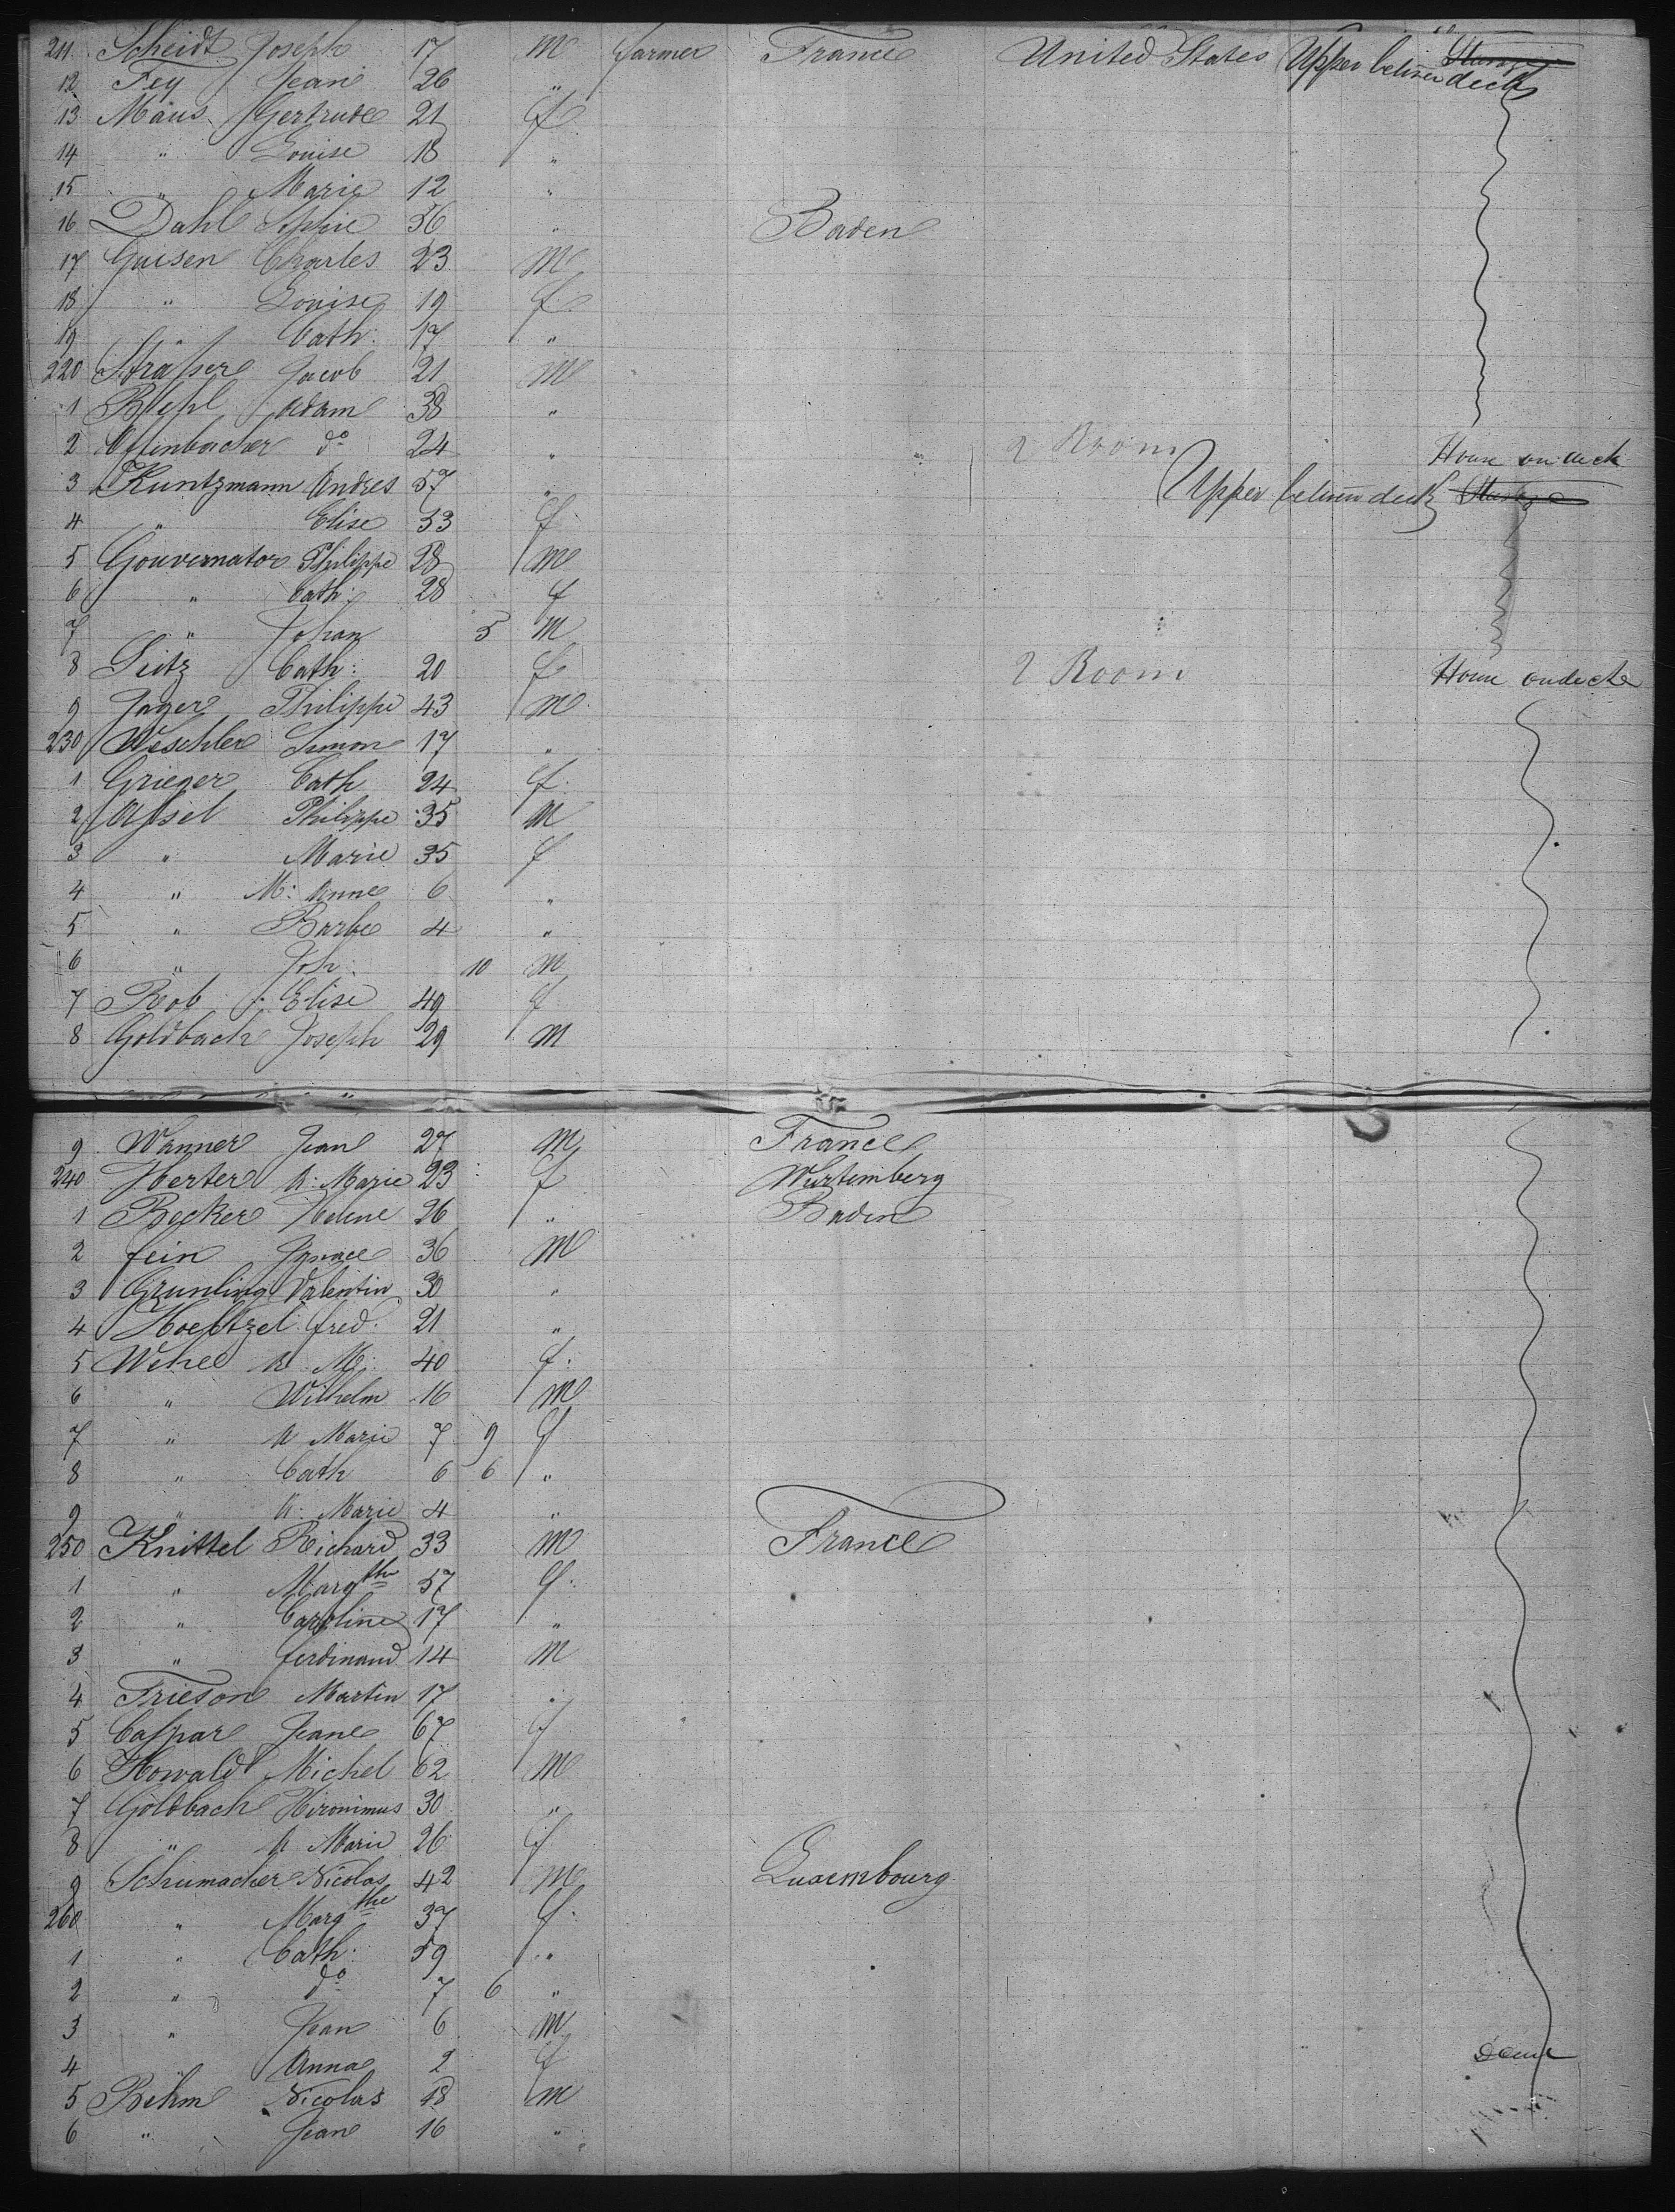 211 Scheidt Joseph 17 M farmer France United States Upper betwn deck Steerage
12 Fey Jean 26 "
13 Maus Gertrude 21 f
14 " Louise 18 "
15 " Marie 12 "
16 Dahl Sophie 36 " Baden
17 Gaisen Charles 23 M
18 " Louise 19 f
19 " Cath: 17 "
220 Straßer Jacob 21 M
1 Biehl Adam 38 "
2 Offenbacher do 24 " 2 Room House on deck
3 Kuntzmann Andres 57 " Upper betwn deck Steerage
4 " Elise 53 f
5 Gouvernator Philippe 28 M
6 " Cath: 28 f
7 " Johan 5 M
8 Seitz Cath: 20 f 2 Room House on deck
9 Jager Philippe 43 M
230 Weschler Simon 17 "
1 Grieger Cath 24 f
2 Aßsel Philippe 35 M
3 " Marie 35 f
4 " M: Anne 6 "
5 " Barbe 4 "
6 " Joh: 10 M
7 Rob Elise 49 f
8 Goldbach Joseph 29 M
9 Wanner Jean 27 M France
240 Herter A: Marie 23 f Wurtemberg
1 Becker Helene 26 " Baden
2 fein Ignace 36 M
3 Grunling Valentin 30 "
4 Hoeltzel fred. 21 "
5 Wehe A. M: 40 f
6 " Wilhelm 16 M
7 " A Marie 7 9 f
8 " Cath 6 6 "
9 " A: Marie 4 "
250 Knittel Richard 33 M France
1 " Margthe 57 f
2 " Caroline 17 "
3 " ferdinand 14 M
4 Frieson Martin 17 "
5 Caspar Jeane 67 f
6 Howald Michel 62 M
7 Goldbach Hironimus 30 "
8 " A Marie 26 f
9 Schumacher Nicolas 42 M Luxembourg
260 " Margthe 37 f
1 " Cath: 59 "
2 " do 7 6 "
3 " Jean 6 M
4 " Anna 2 f
5 Behm Nicolas 18 M
6 " Jean 16 "